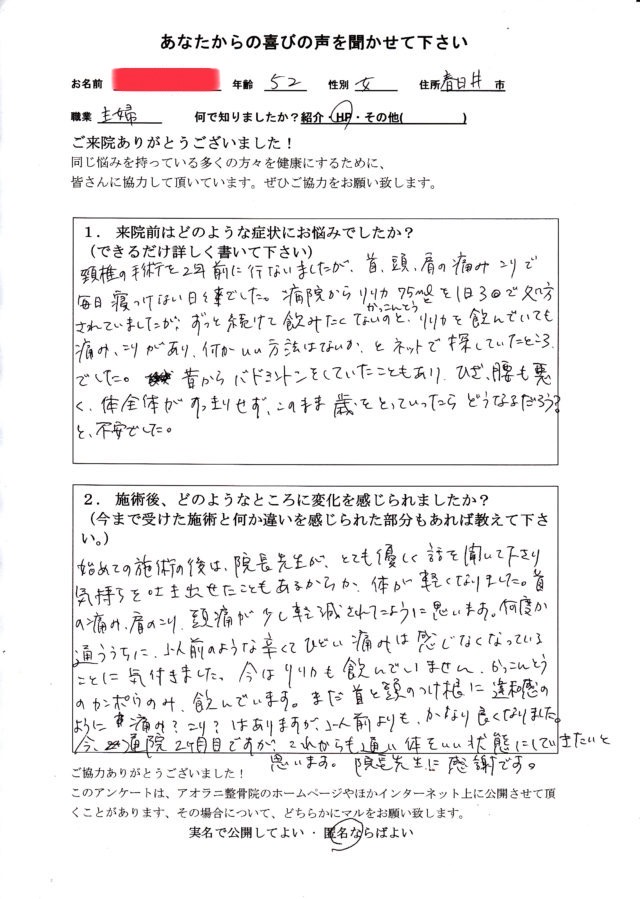 あなたからの喜びの声を聞かせて下さい
お名前 年齢 52 性別 女 住所 春日井 市
職業 主婦 何で知りましたか？紹介・HP・その他( )
ご来院ありがとうございました！
同じ悩みを持っている多くの方々を健康にするために、
皆さんに協力して頂いています。ぜひご協力をお願い致します。
1．来院前はどのような症状にお悩みでしたか？
（できるだけ詳しく書いて下さい）
頸椎の手術を2年前に行ないましたが、首、頭、肩の痛み こりで
毎日寝つけない日々でした。病院から リリカ 75mlと
かっこんとう
を1日3回で処方
されていましたが、ずっと続けて飲みたくないのと、リリカを飲んでいても
痛み、こりがあり、何かいい方法はないか、とネットで探していたところ
でした。昔からバドミントンをしていたこともあり、ひざ、腰も悪
く、体全体がすっきりせず、このまま歳をとっていったらどうなるだろう？
と、不安でした。
2．施術後、どのようなところに変化を感じられましたか？
（今まで受けた施術と何か違いを感じられた部分もあれば教えて下さ
い。）
始めての施術の後は、院長先生が、とても優しく話を聞いて下さり
気持ちを吐き出せたこともあるからか、体が軽くなりました。首
の痛み、肩のこり、頭痛が少し軽減されたように思います。何度か
通ううちに、以前のような辛くてひどい痛みは感じなくなっている
ことに気付きました。今はリリカも飲んでいません。かっこんとう
のカンポウのみ、飲んでいます。まだ首と頭のつけ根に違和感の
ように 痛み？こり？はありますが、以前よりも、かなり良くなりました。
今、通院2ヶ月目ですが、これからも通い体をいい状態にしていきたいと
思います。院長先生に感謝です。
ご協力ありがとうございました！
このアンケートは、アオラニ整骨院のホームページやほかインターネット上に公開させて頂
くことがあります、その場合について、どちらかにマルをお願い致します。
実名で公開してよい ・ 匿名ならばよい